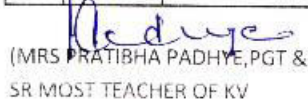 Padhye
(MRS PRATIBHA PADHYE,PGT &
SR MOST TEACHER OF KV